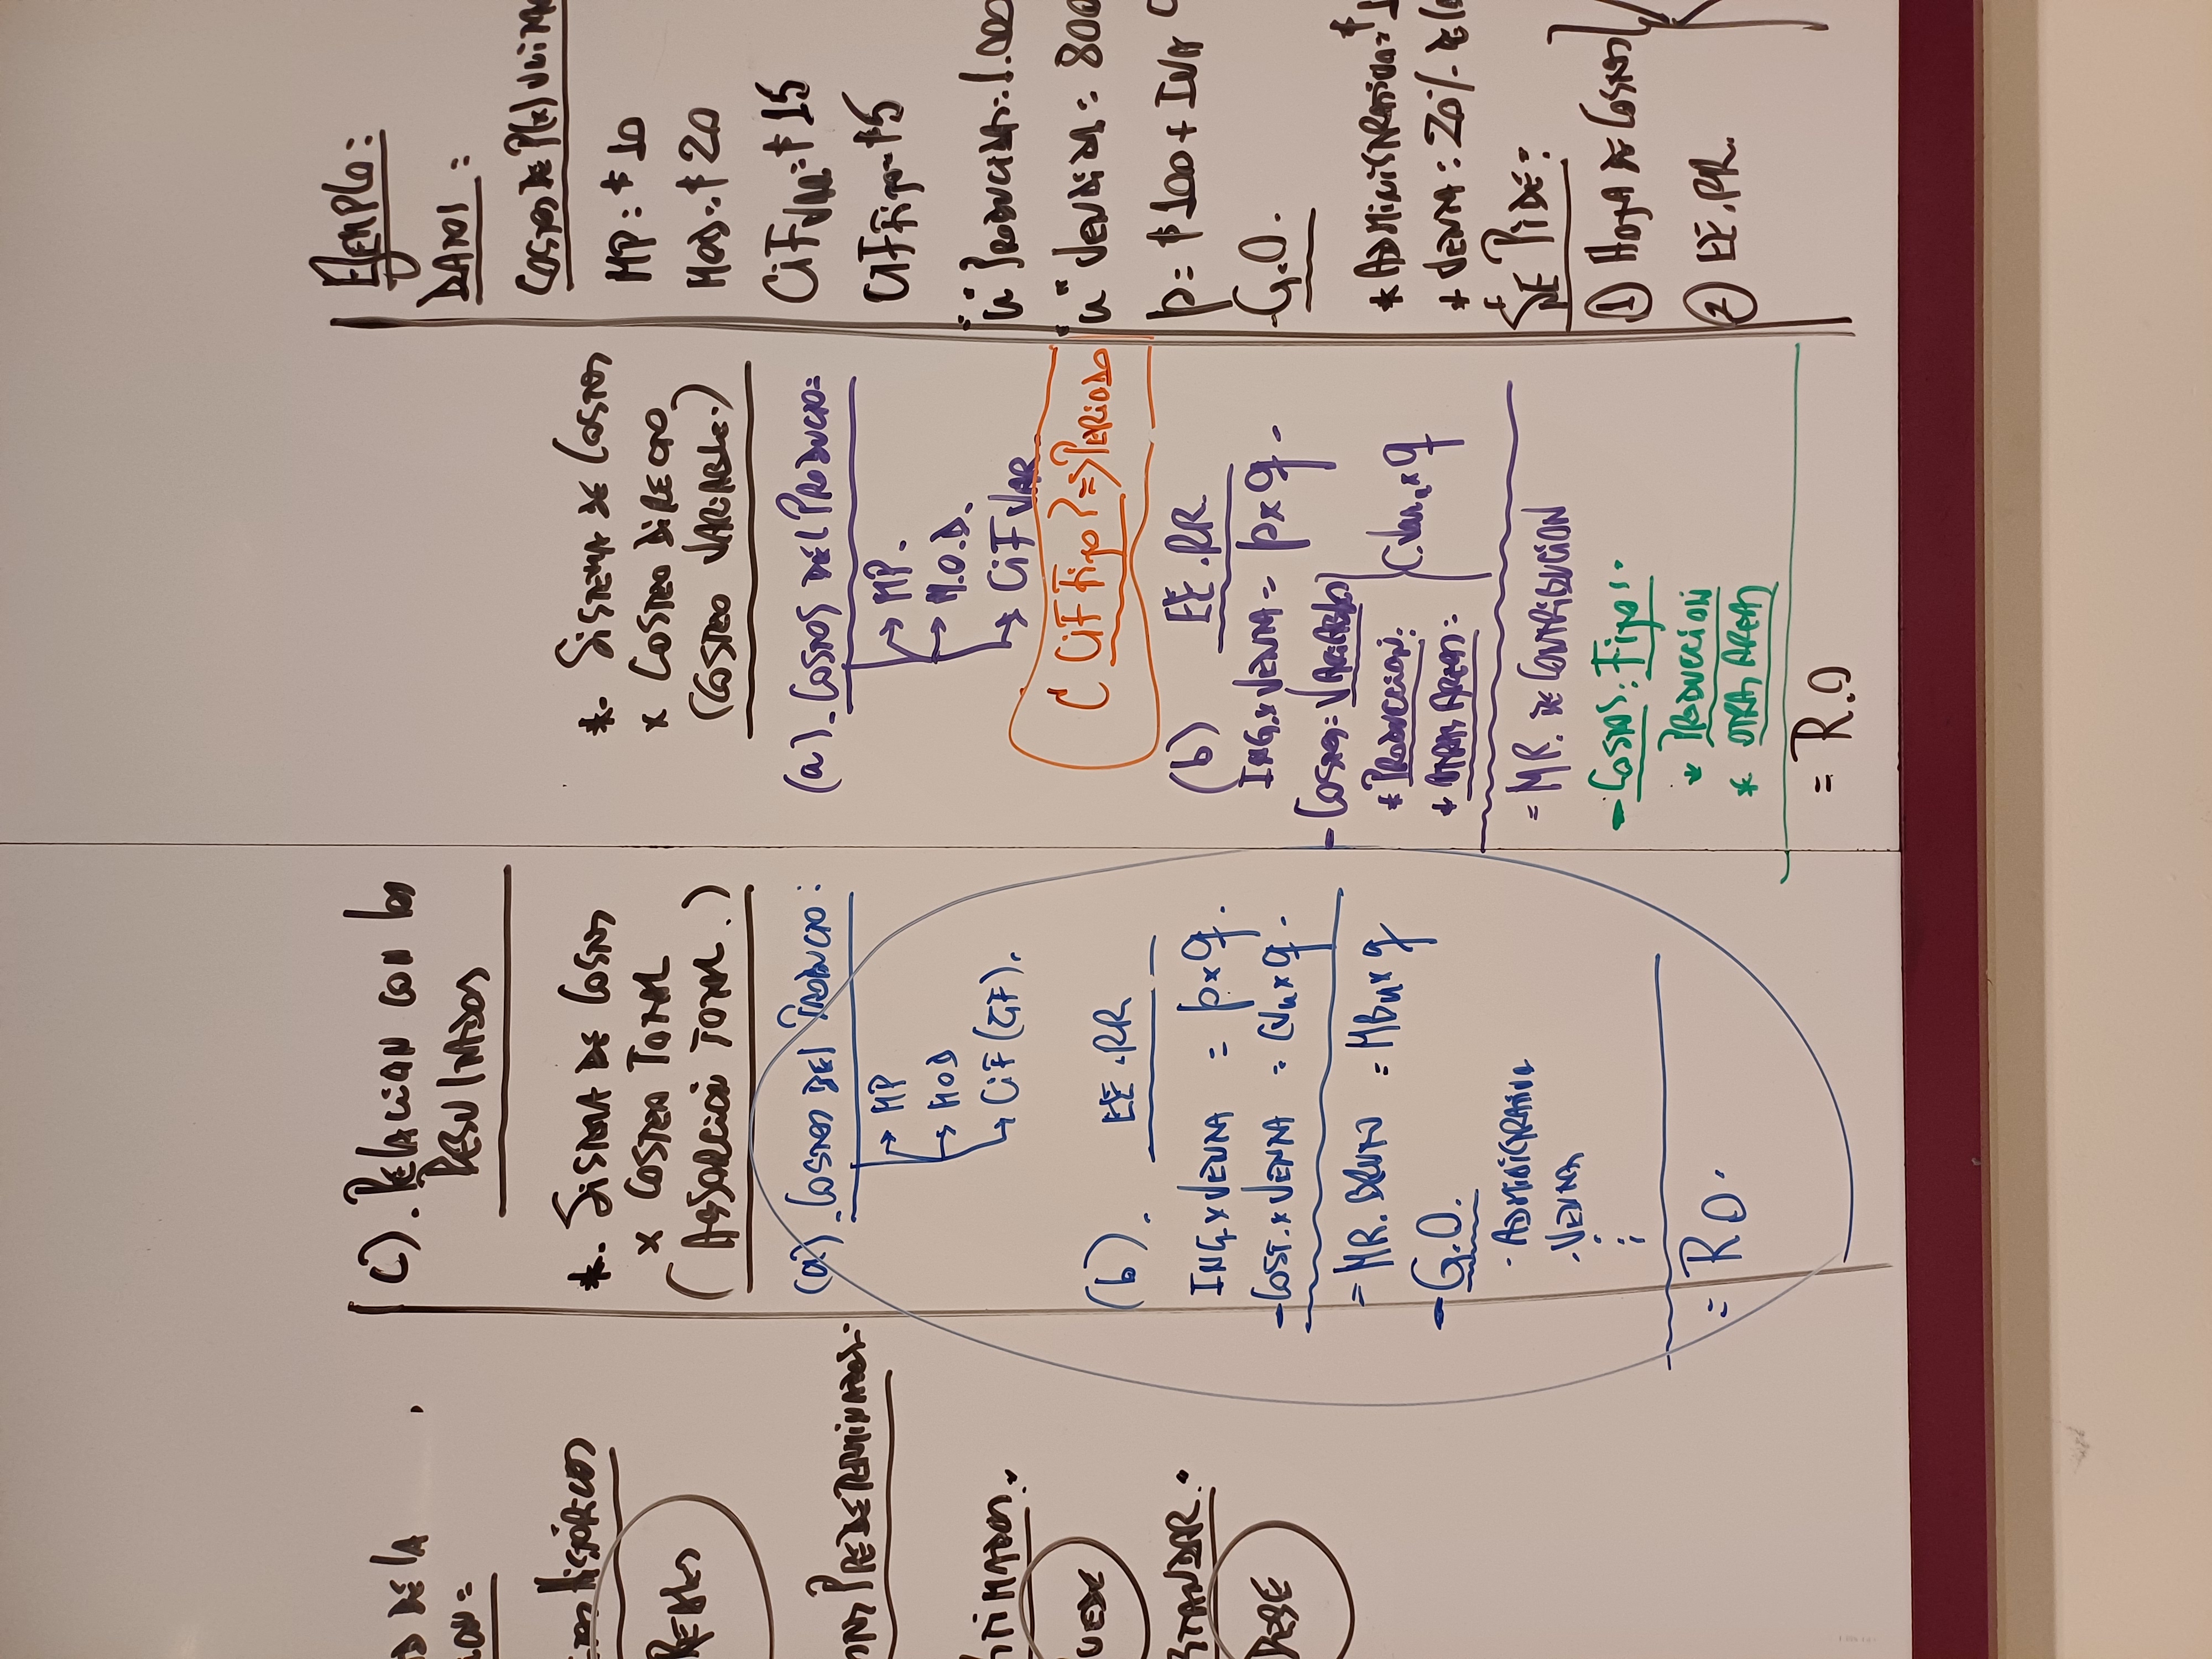 DE LA
Históricos
REALES
PREDETERMINADOS.
ESTIMADOS.
PUEDE
ESTANDAR.
DEBE
C). RELACION CON LOS
RESULTADOS
*. SISTEMA DE COSTOS
x COSTEO TOTAL
(ABSORCION TOTAL.)
(a). COSTOS DEL PRODUCTO:
→ MP
→ MOD
→ CiF (GF).
(b). EE.RR
ING. x VENTA = p x q.
- COST. x VENTA = CVu x q.
= MR. BRUTO = MBu x q
- G.O.
- ADMINISTRATIVO
. VENTA
= R.O.
*. SISTEMA DE COSTOS
x COSTEO DIRECTO
(COSTEO VARIABLE.)
(a). COSTOS DEL PRODUCTO:
→ MP.
→ M.O.D.
→ CiF VAR
¿ CiF Fijo? => PERIODO
(b) EE.RR
ING. x VENTA = p x q.
- COSTOS: VARIABLES
* PRODUCCION:
* OTRAS AREAS:
C.Varu x q
= MR. DE CONTRIBUCION
- COSTOS: Fijos.
* PRODUCCION
* OTRAS AREAS
= R.O
EJEMPLO:
DATOS:
COSTOS DE P(x)
MP: $10
MOD: $20
CiF VAR: $15
CiF Fijo $5
"u" PRODUCIDAS: 1.000
"u" VENDIDAS = 800
p = $100 + IVA
- G.O.
* ADMINISTRATIVO: $1
* VENTA: 20% DE
SE PIDE:
① HOJA DE COSTOS
② EE.RR.